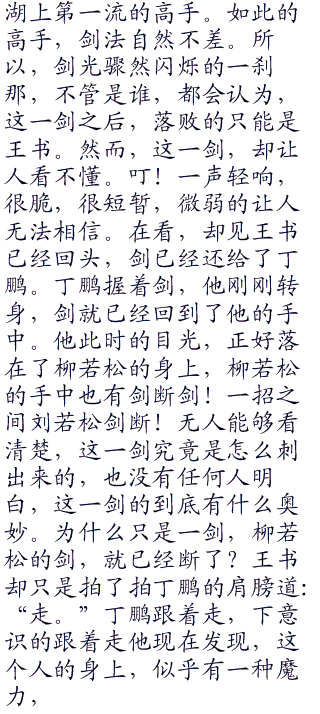 湖上第一流的高手。如此的
高手，剑法自然不差。所
以，剑光骤然闪烁的一刹
那，不管是谁，都会认为，
这一剑之后，落败的只能是
王书。然而，这一剑，却让
人看不懂。叮！一声轻响，
很脆，很短暂，微弱的让人
无法相信。在看，却见王书
已经回头，剑已经还给了丁
鹏。丁鹏握着剑，他刚刚转
身，剑就已经回到了他的手
中。他此时的目光，正好落
在了柳若松的身上，柳若松
的手中也有剑断剑！一招之
间刘若松剑断！无人能够看
清楚，这一剑究竟是怎么刺
出来的，也没有任何人明
白，这一剑的到底有什么奥
妙。为什么只是一剑，柳若
松的剑，就已经断了？王书
却只是拍了拍丁鹏的肩膀道：
“走。”丁鹏跟着走，下意
识的跟着走他现在发现，这
个人的身上，似乎有一种魔
力，